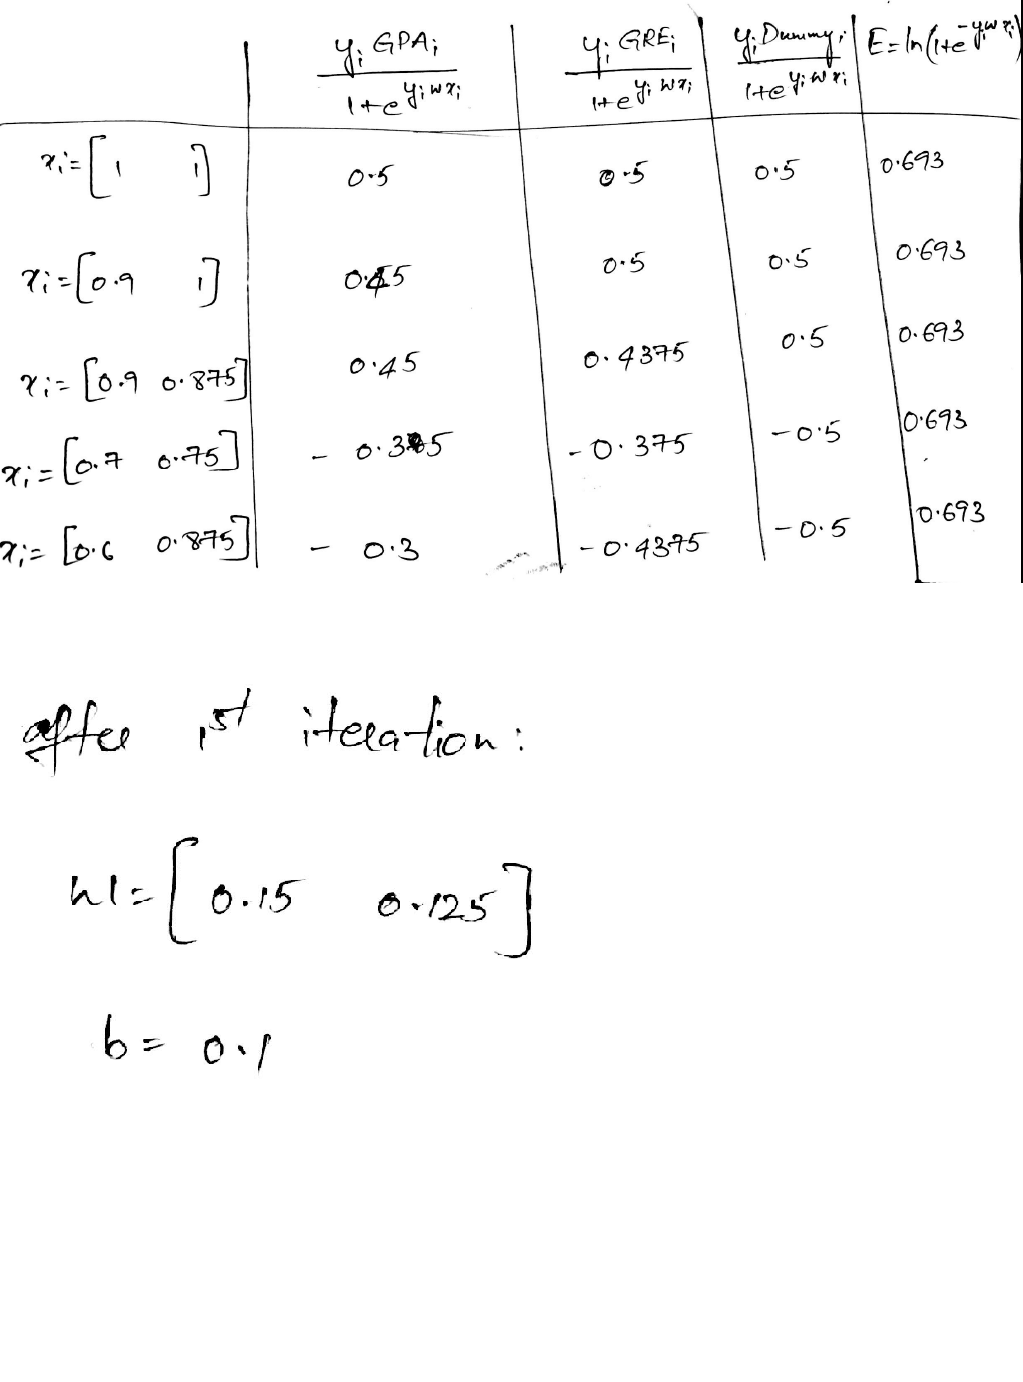 y_i GPA_i / 1+e^{y_i w x_i} | y_i GRE_i / 1+e^{y_i w x_i} | y_i Dummy_i / 1+e^{y_i w x_i} | E=ln(1+e^{-y_i w x_i})
x_i=[1 1] | 0.5 | 0.5 | 0.5 | 0.693
x_i=[0.9 1] | 0.45 | 0.5 | 0.5 | 0.693
x_i=[0.9 0.875] | 0.45 | 0.4375 | 0.5 | 0.693
x_i=[0.7 0.75] | -0.35 | -0.375 | -0.5 | 0.693
x_i=[0.6 0.875] | -0.3 | -0.4375 | -0.5 | 0.693
after 1st iteration:
w1=[0.15 0.125]
b=0.1